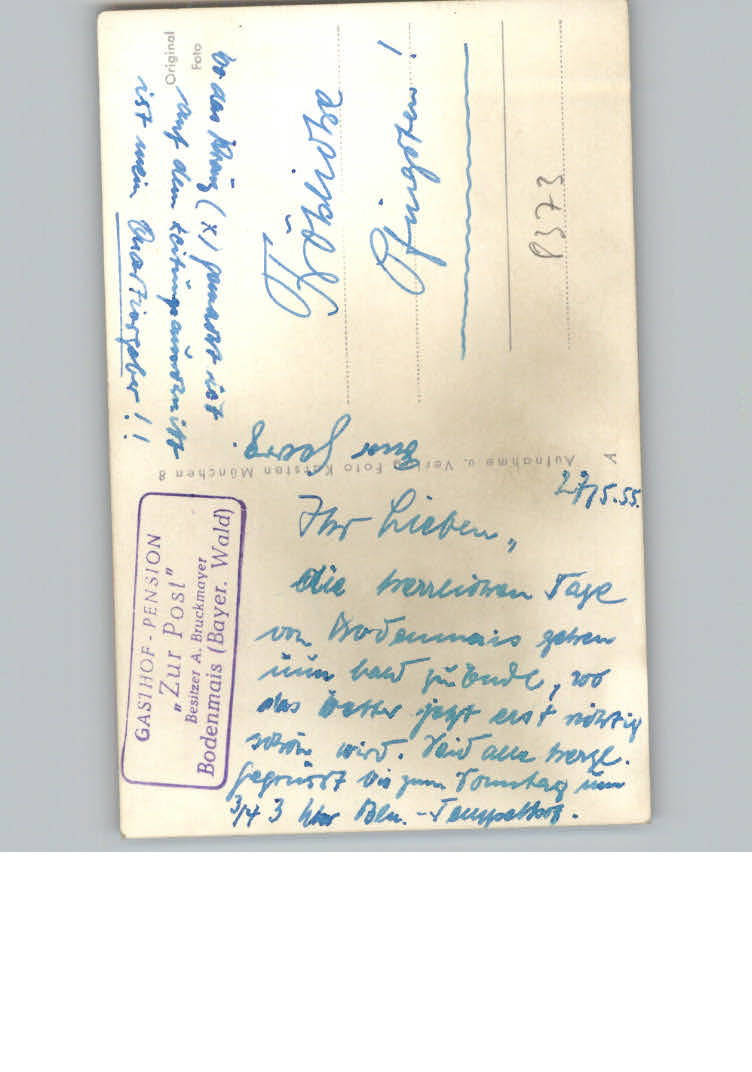 27/5.55.
Ihr Lieben,,
die herrlichen Tage
von Bodenmais gehen
nun bald zu Ende, wo
das Wetter jetzt erst richtig
schön wird. Seid alle herzl.
gegrüsst bis zum Sonntag um
3/4 3 Uhr Bln.-Tempelhof.
Euer Georg.
Fröhliche
Pfingsten!
Wo das Kreuz (x) gemacht ist
auf dem Zeitungsausschnitt
ist mein Quartiergeber!!
GASTHOF-PENSION
„Zur Post"
Besitzer A. Bruckmayer
Bodenmais (Bayer. Wald)
Original
Foto
Aufnahme u. Verlag Foto Karsten München 8
A
P373